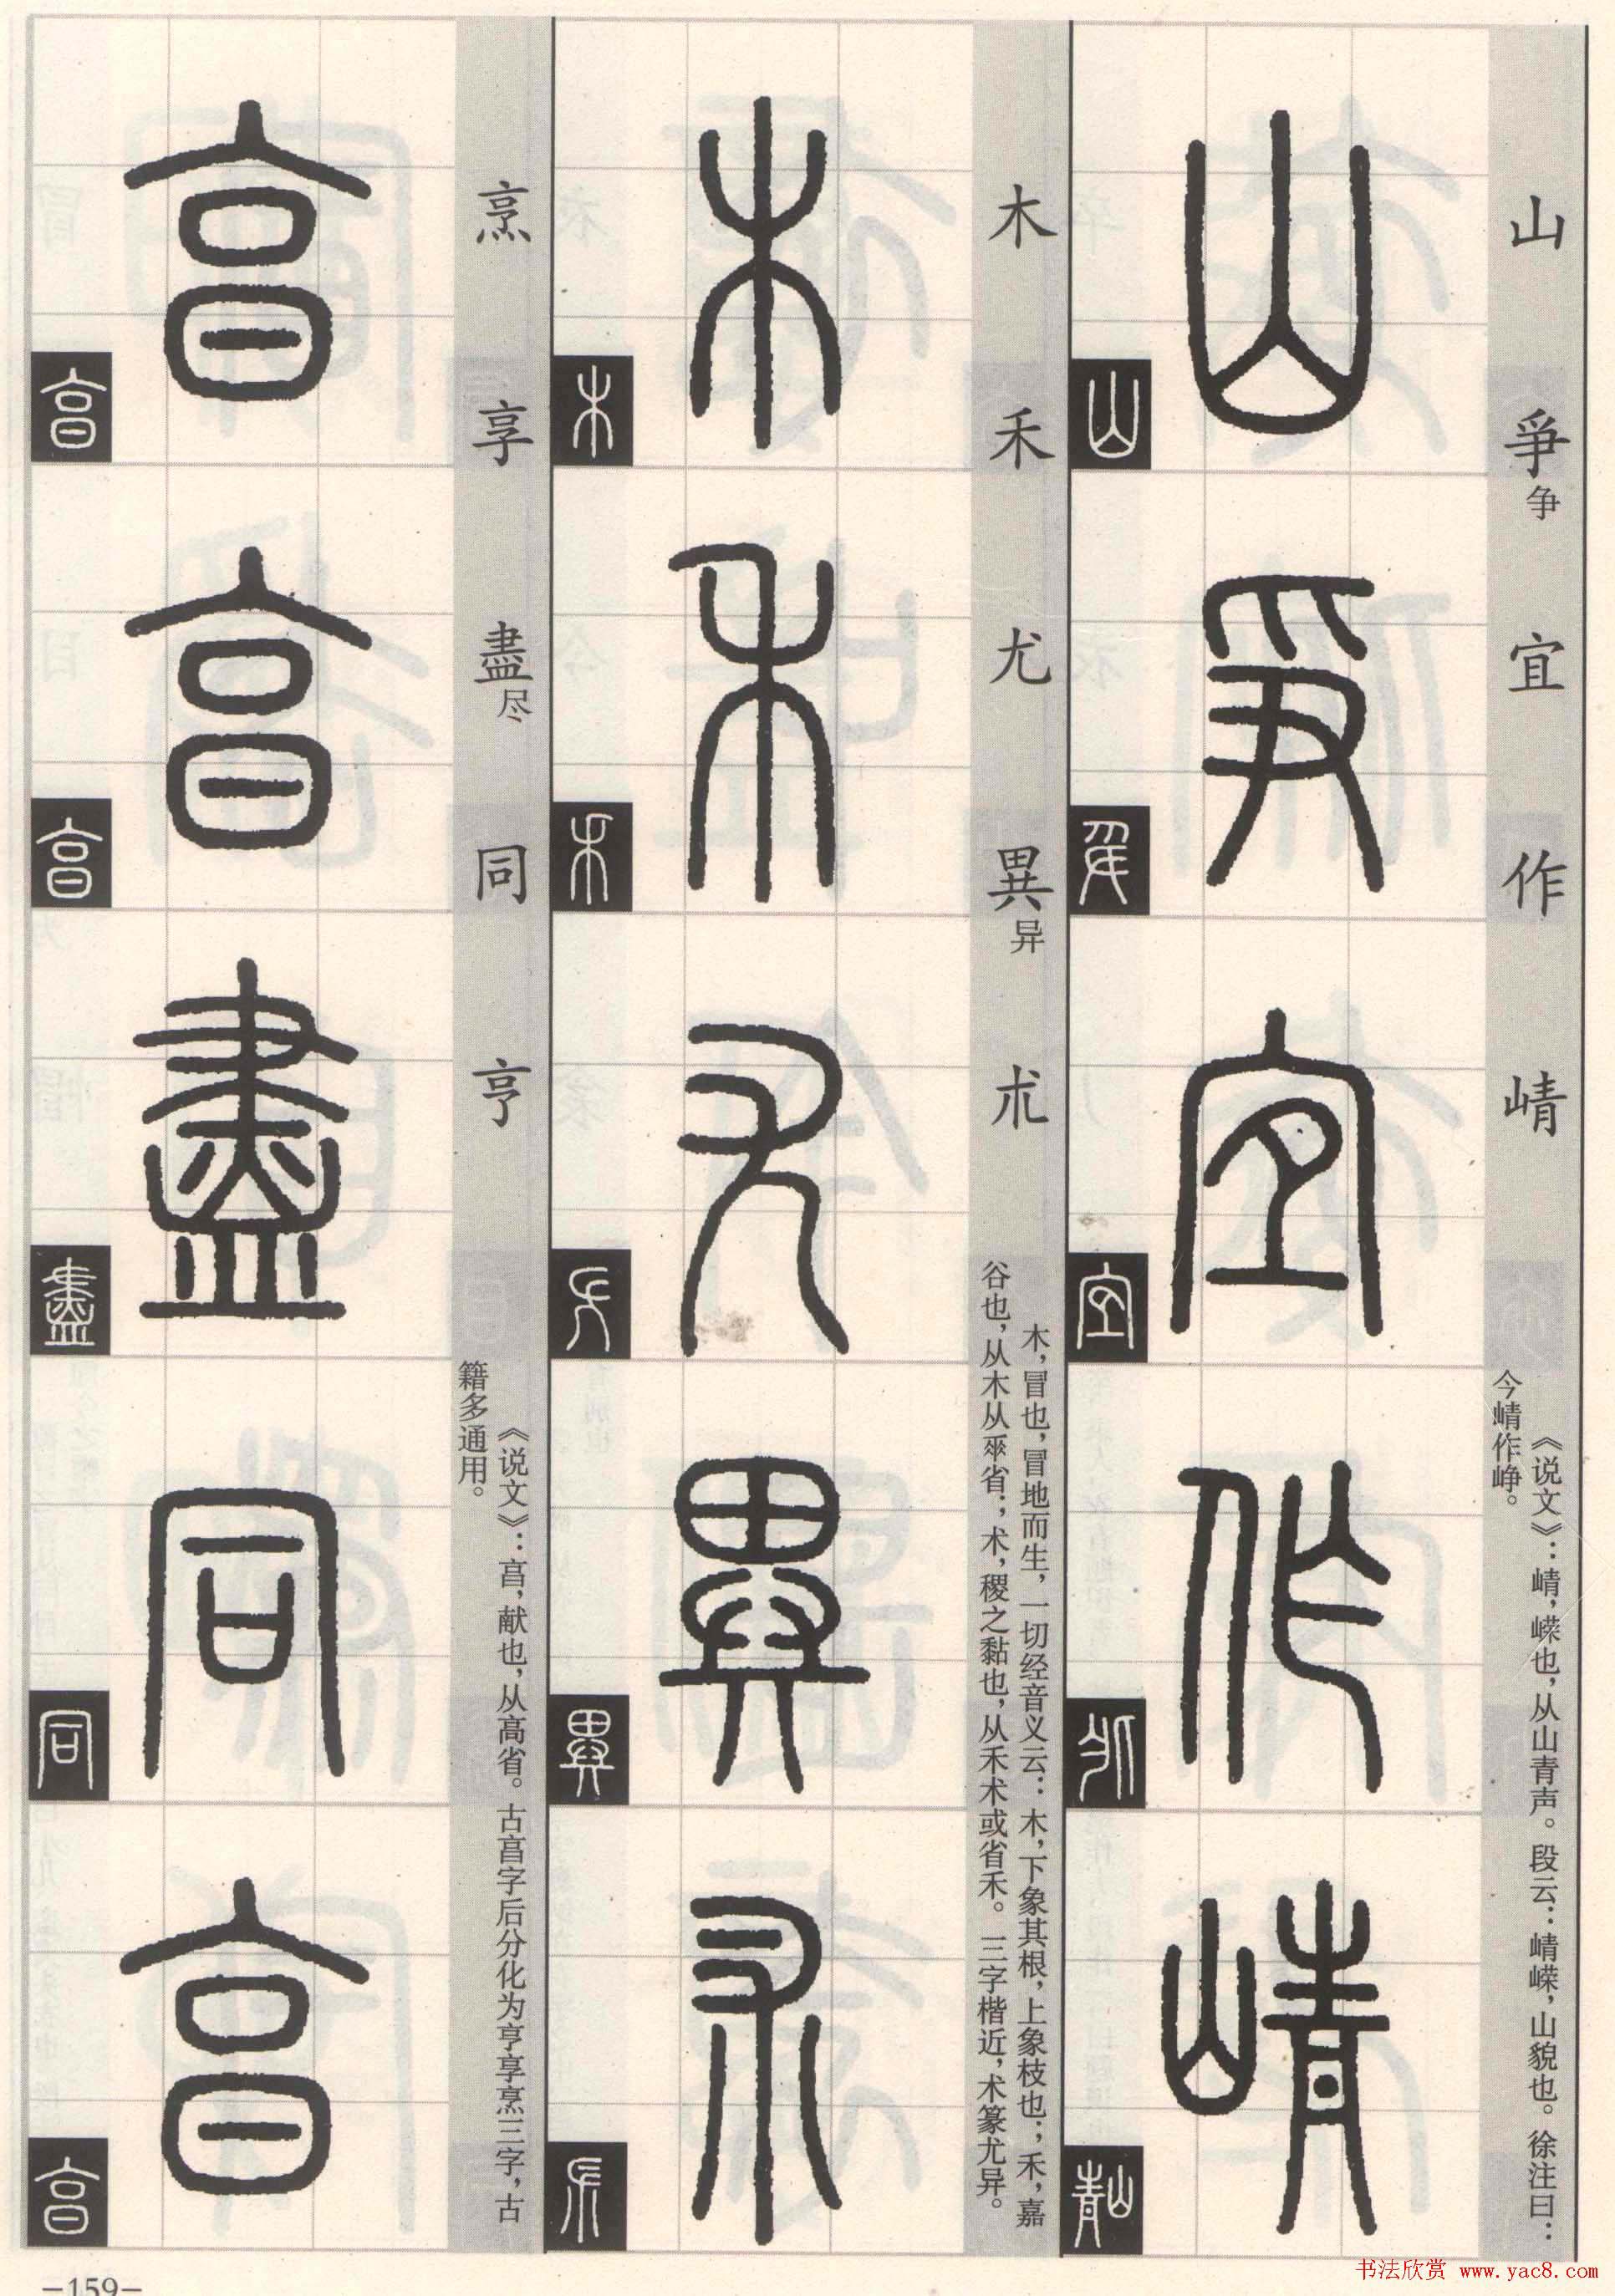 山 爭争 宜 作 崝
《说文》：崝，嵘也，从山青声。段云：崝嵘，山貌也。徐注曰：
今崝作峥。
木 禾 尤 異异 朮
木，冒也，冒地而生，一切经音义云：木，下象其根，上象枝也；禾，嘉
谷也，从木从𠂹省；术，稷之黏也，从禾术或省禾。三字楷近，术篆尤异。
烹 享 盡尽 同 亨
《说文》：亯，献也，从高省。古亯字后分化为亨享烹三字，古
籍多通用。
-159-
书法欣赏 www.yac8.com